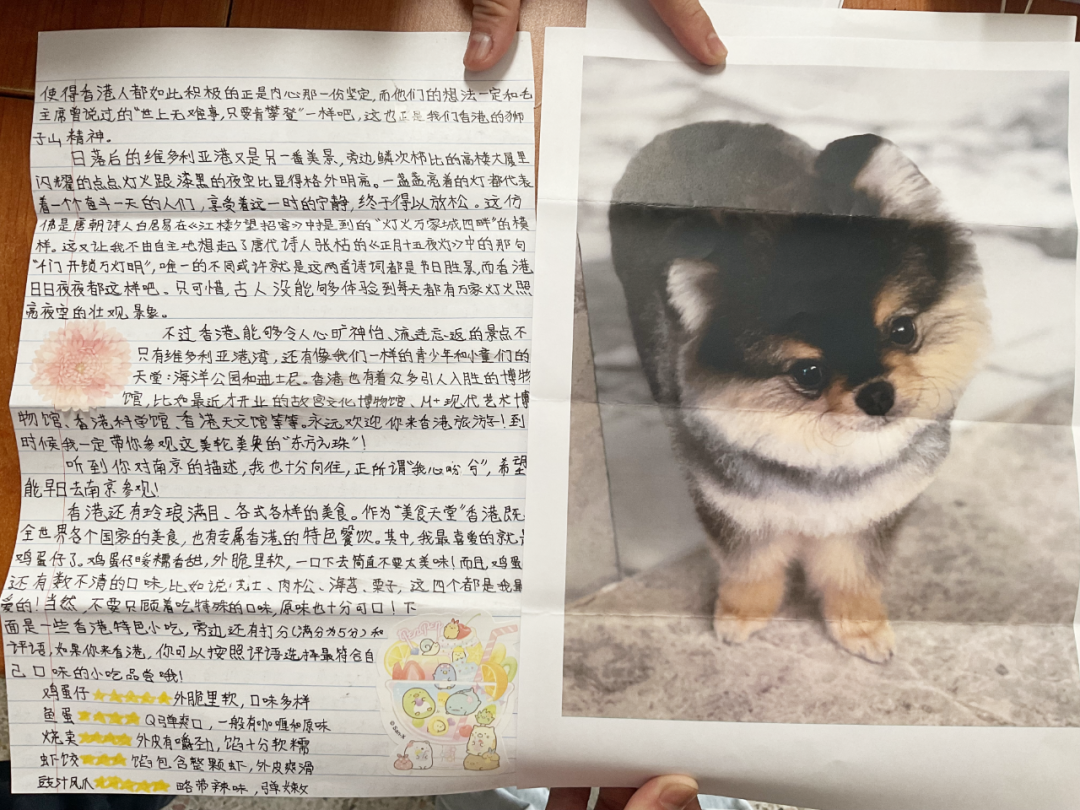 使得香港人都如此积极的正是内心那一份坚定,而他们的想法一定和毛
主席曾说过的“世上无难事,只要肯攀登”一样吧,这也正是我们香港的狮
子山精神。
日落后的维多利亚港又是另一番美景,旁边鳞次栉比的高楼大厦里
闪耀的点点灯火跟漆黑的夜空比显得格外明亮。一盏盏亮着的灯都代表
着一个个奋斗一天的人们,享受着这一时的宁静,终于得以放松。这仿
佛是唐朝诗人白居易在《江楼夕望招客》中提到的“灯火万家城四畔”的模
样。这又让我不由自主地想起了唐代诗人张祜的《正月十五夜灯》中的那句
“千门开锁万灯明”,唯一的不同或许就是这两首诗词都是节日胜景,而香港
日日夜夜都这样吧。只可惜,古人没能够体验到每天都有万家灯火照
亮夜空的壮观景象。
不过香港能够令人心旷神怡、流连忘返的景点不
只有维多利亚港湾,还有像我们一样的青少年和小童们的
天堂:海洋公园和迪士尼。香港也有着众多引人入胜的博物
馆,比如最近才开业的故宫文化博物馆、M+现代艺术博
物馆、香港科学馆、香港天文馆等等。永远欢迎你来香港旅游!到
时候我一定带你参观这美轮美奂的“东方之珠”!
听到你对南京的描述,我也十分向往,正所谓“我心吩兮”,希望
能早日去南京参观!
香港还有玲琅满目、各式各样的美食。作为“美食天堂”香港既
全世界各个国家的美食,也有专属香港的特色餐饮。其中,我最喜爱的就是
鸡蛋仔了。鸡蛋仔暖糯香甜,外脆里软,一口下去简直不要太美味!而且,鸡蛋
还有数不清的口味,比如说芝士、肉松、海苔、栗子,这四个都是我最
爱的!当然,不要只顾着吃特殊的口味,原味也十分可口!下
面是一些香港特色小吃,旁边还有打分(满分为5分)和
评语,如果你来香港,你可以按照评语选择最符合自
己口味的小吃品尝哦!
鸡蛋仔★★★★★外脆里软,口味多样
鱼蛋★★★★Q弹爽口,一般有咖喱和原味
烧卖★★★★外皮有嚼劲,馅十分软糯
虾饺★★★★馅包含整颗虾,外皮爽滑
豉汁凤爪★★★★★略带辣味,弹嫩